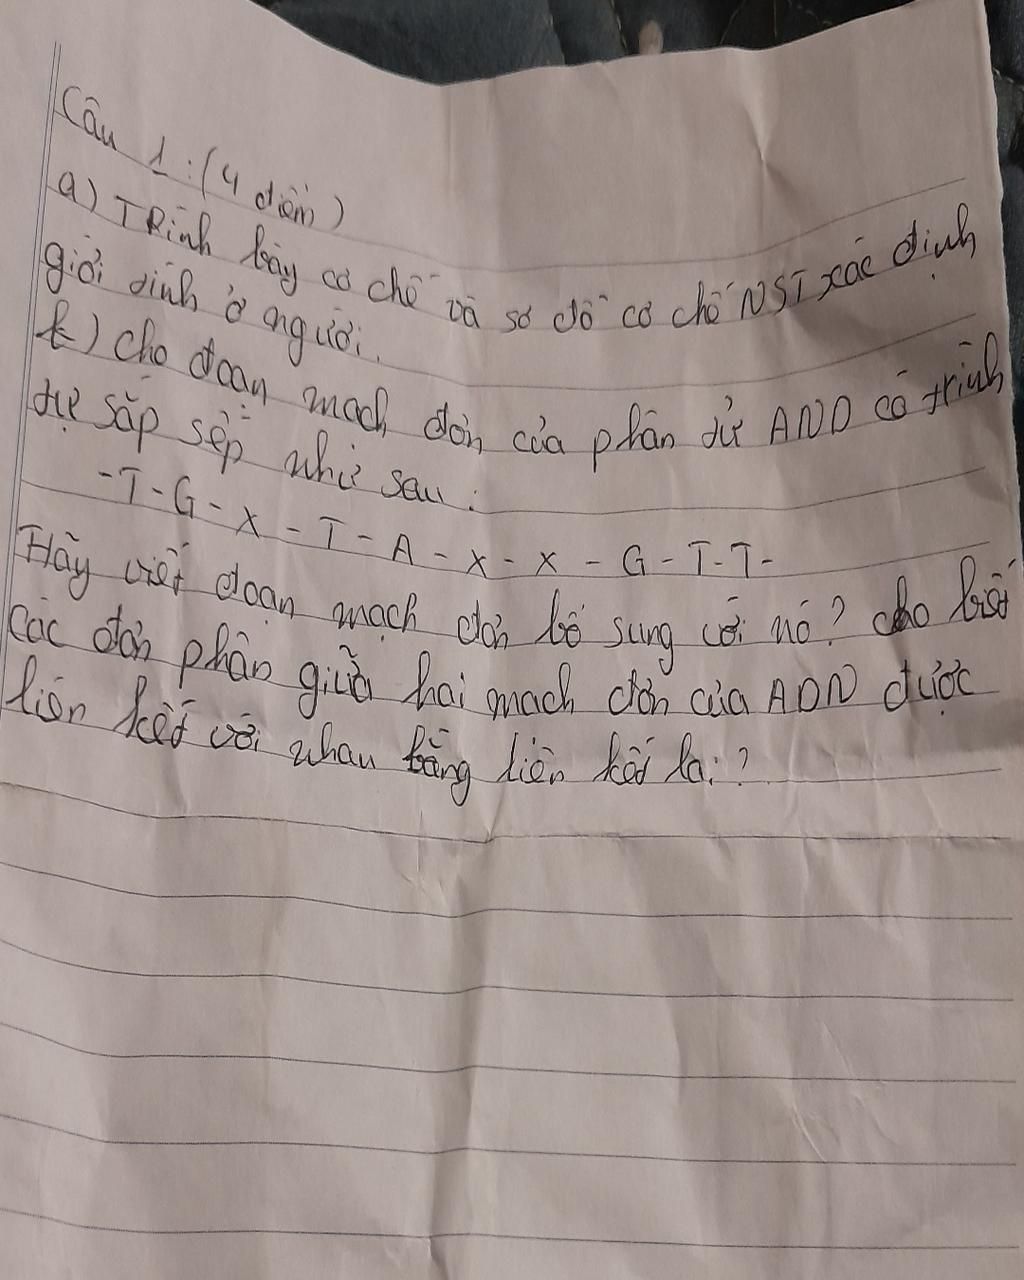 Câu 1: (4 điểm)
a) Trình bày cơ chế và sơ đồ cơ chế NST xác định
giới tính ở người.
b) cho đoạn mạch đơn của phân tử AND có trình
tự sắp sếp như sau:
-T-G-X-T-A-X-X-G-T-T-
Hãy viết đoạn mạch đơn bổ sung với nó? cho biết
các đơn phân giữa hai mạch đơn của ADN được
liên kết với nhau bằng liên kết lại?